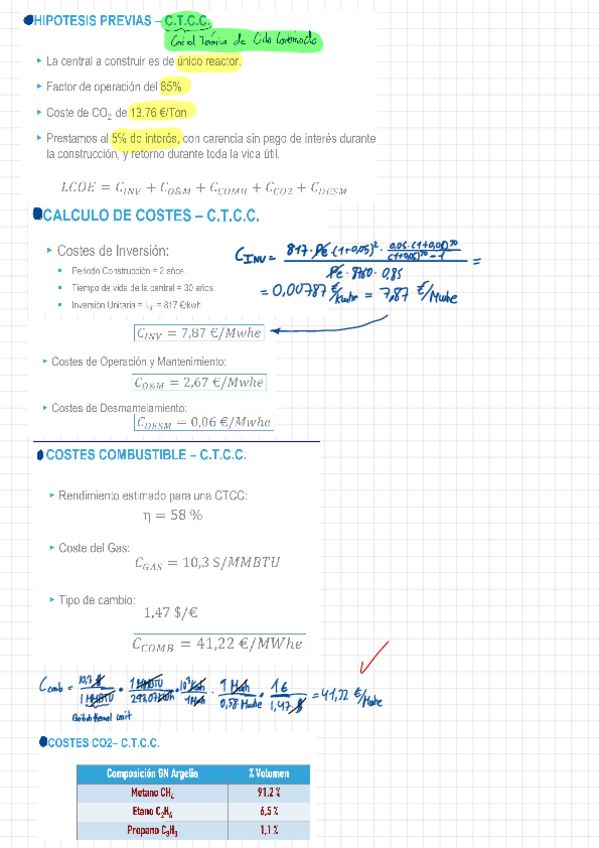 HIPOTESIS PREVIAS – C.T.C.C.
Central Térmica de Ciclo Combinado
La central a construir es de único reactor.
Factor de operación del 85%
Coste de CO2 de 13.76 €/Ton
Prestamos al 5% de interés, con carencia sin pago de interés durante
la construcción, y retorno durante toda la vida útil.
LCOE = C_INV + C_O&M + C_COMB + C_CO2 + C_DESM
CALCULO DE COSTES – C.T.C.C.
Costes de Inversión:
Periodo Construcción = 2 años.
Tiempo de vida de la central = 30 años.
Inversión Unitaria = I_U = 817 €/kwh
C_INV = 817·Pe·(1+0,05)^2 · 0,05·(1+0,05)^30 / (1+0,05)^30 − 1 =
Pe · 8760 · 0,85
= 0,00787 €/Kwhe = 7,87 €/Mwhe
C_INV = 7,87 €/Mwhe
Costes de Operación y Mantenimiento:
C_O&M = 2,67 €/Mwhe
Costes de Desmantelamiento:
C_DESM = 0,06 €/Mwhe
COSTES COMBUSTIBLE – C.T.C.C.
Rendimiento estimado para una CTCC:
η = 58 %
Coste del Gas:
C_GAS = 10,3 $/MMBTU
Tipo de cambio:
1,47 $/€
C_COMB = 41,22 €/MWhe
C_comb = 10,3 $ / 1 MMBTU · 1 MMBTU / 293,07 Kwh · 10^3 Kwh / 1 Mwh · 1 Mwh / 0,58 Mwhe · 1 € / 1,47 $ = 41,22 €/Mwhe
unit
COSTES CO2– C.T.C.C.
Composición GN Argelia % Volumen
Metano CH4 91,2 %
Etano C2H6 6,5 %
Propano C3H3 1,1 %